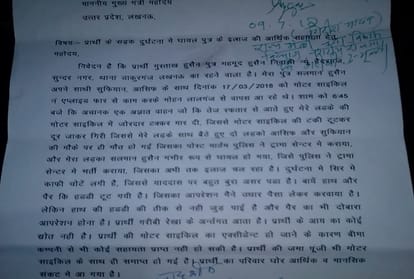 माननीय मुख्य मंत्री महोदय
उत्तर प्रदेश, लखनऊ,
विषय:- प्रार्थी के सड़क दुर्घटना में घायल पुत्र के इलाज की आर्थिक सहायता
महोदय,
निवेदन है कि प्रार्थी मुस्ताख हुसैन पुत्र महमूद हुसैन निवासी
सुन्दर नगर, थाना ठाकुरगंज लखनऊ का रहने वाला है। मेरा पुत्र सलमान हुसैन
अपने साथी सुकियान, आसिफ के साथ दिनांक 17/03/2016 को मोटर साइकिल
में एप्लाइड फार से काम करके मोहन लालगंज से वापस आ रहे थे। शाम को 6:45
बजे कि अचानक एक अज्ञात वाहन जो कि तेज रफ्तार से आते हुए मेरे लड़के की
मोटर साइकिल में जोरदार टक्कर मार दी, जिससे मोटर साइकिल की टंकी टूटकर
दूर जाकर गिरी जिससे मेरे लड़के साथ बैठे हुए दो लड़को आसिफ और सुकियान
की मौके पर ही मौत हो गई जिसका पोस्ट मार्टम पुलिस ने ट्रामा सेन्टर में कराया,
और मेरा लड़का सलमान हुसैन गम्भीर रूप से घायल हो गया, जिसे पुलिस ने ट्रामा
सेन्टर में भर्ती कराया, जिसका अभी तक इलाज चल रहा है। दुर्घटना में सिर में
काफी चोटें लगी है, जिससे याददाश्त पर बहुत बुरा असर पडा है। बायें हाथ और
पैर कि हडडी टूट गयी है। जिसका आपरेशन मैने उधार पैसा लेकर करवाया है।
लेकिन हाथ की हडडी ठीक से नही जुड़ पाई है और पैर का भी दोबारा
आपरेशन होना है। प्रार्थी गरीबी रेखा के अर्न्तगत आता है। प्रार्थी के आय का कोई
स्रोत नही है। प्रार्थी की मोटर साइकिल का एक्सीडेन्ट हो जाने के कारण बीमा
कम्पनी से भी कोई सहायता प्राप्त नही हो सकी है। प्रार्थी की जमा पूंजी भी मोटर
साइकिल के साथ ही समाप्त हो गई है। प्रार्थी का परिवार घोर आर्थिक व मानसिक
संकट में आ गया है।